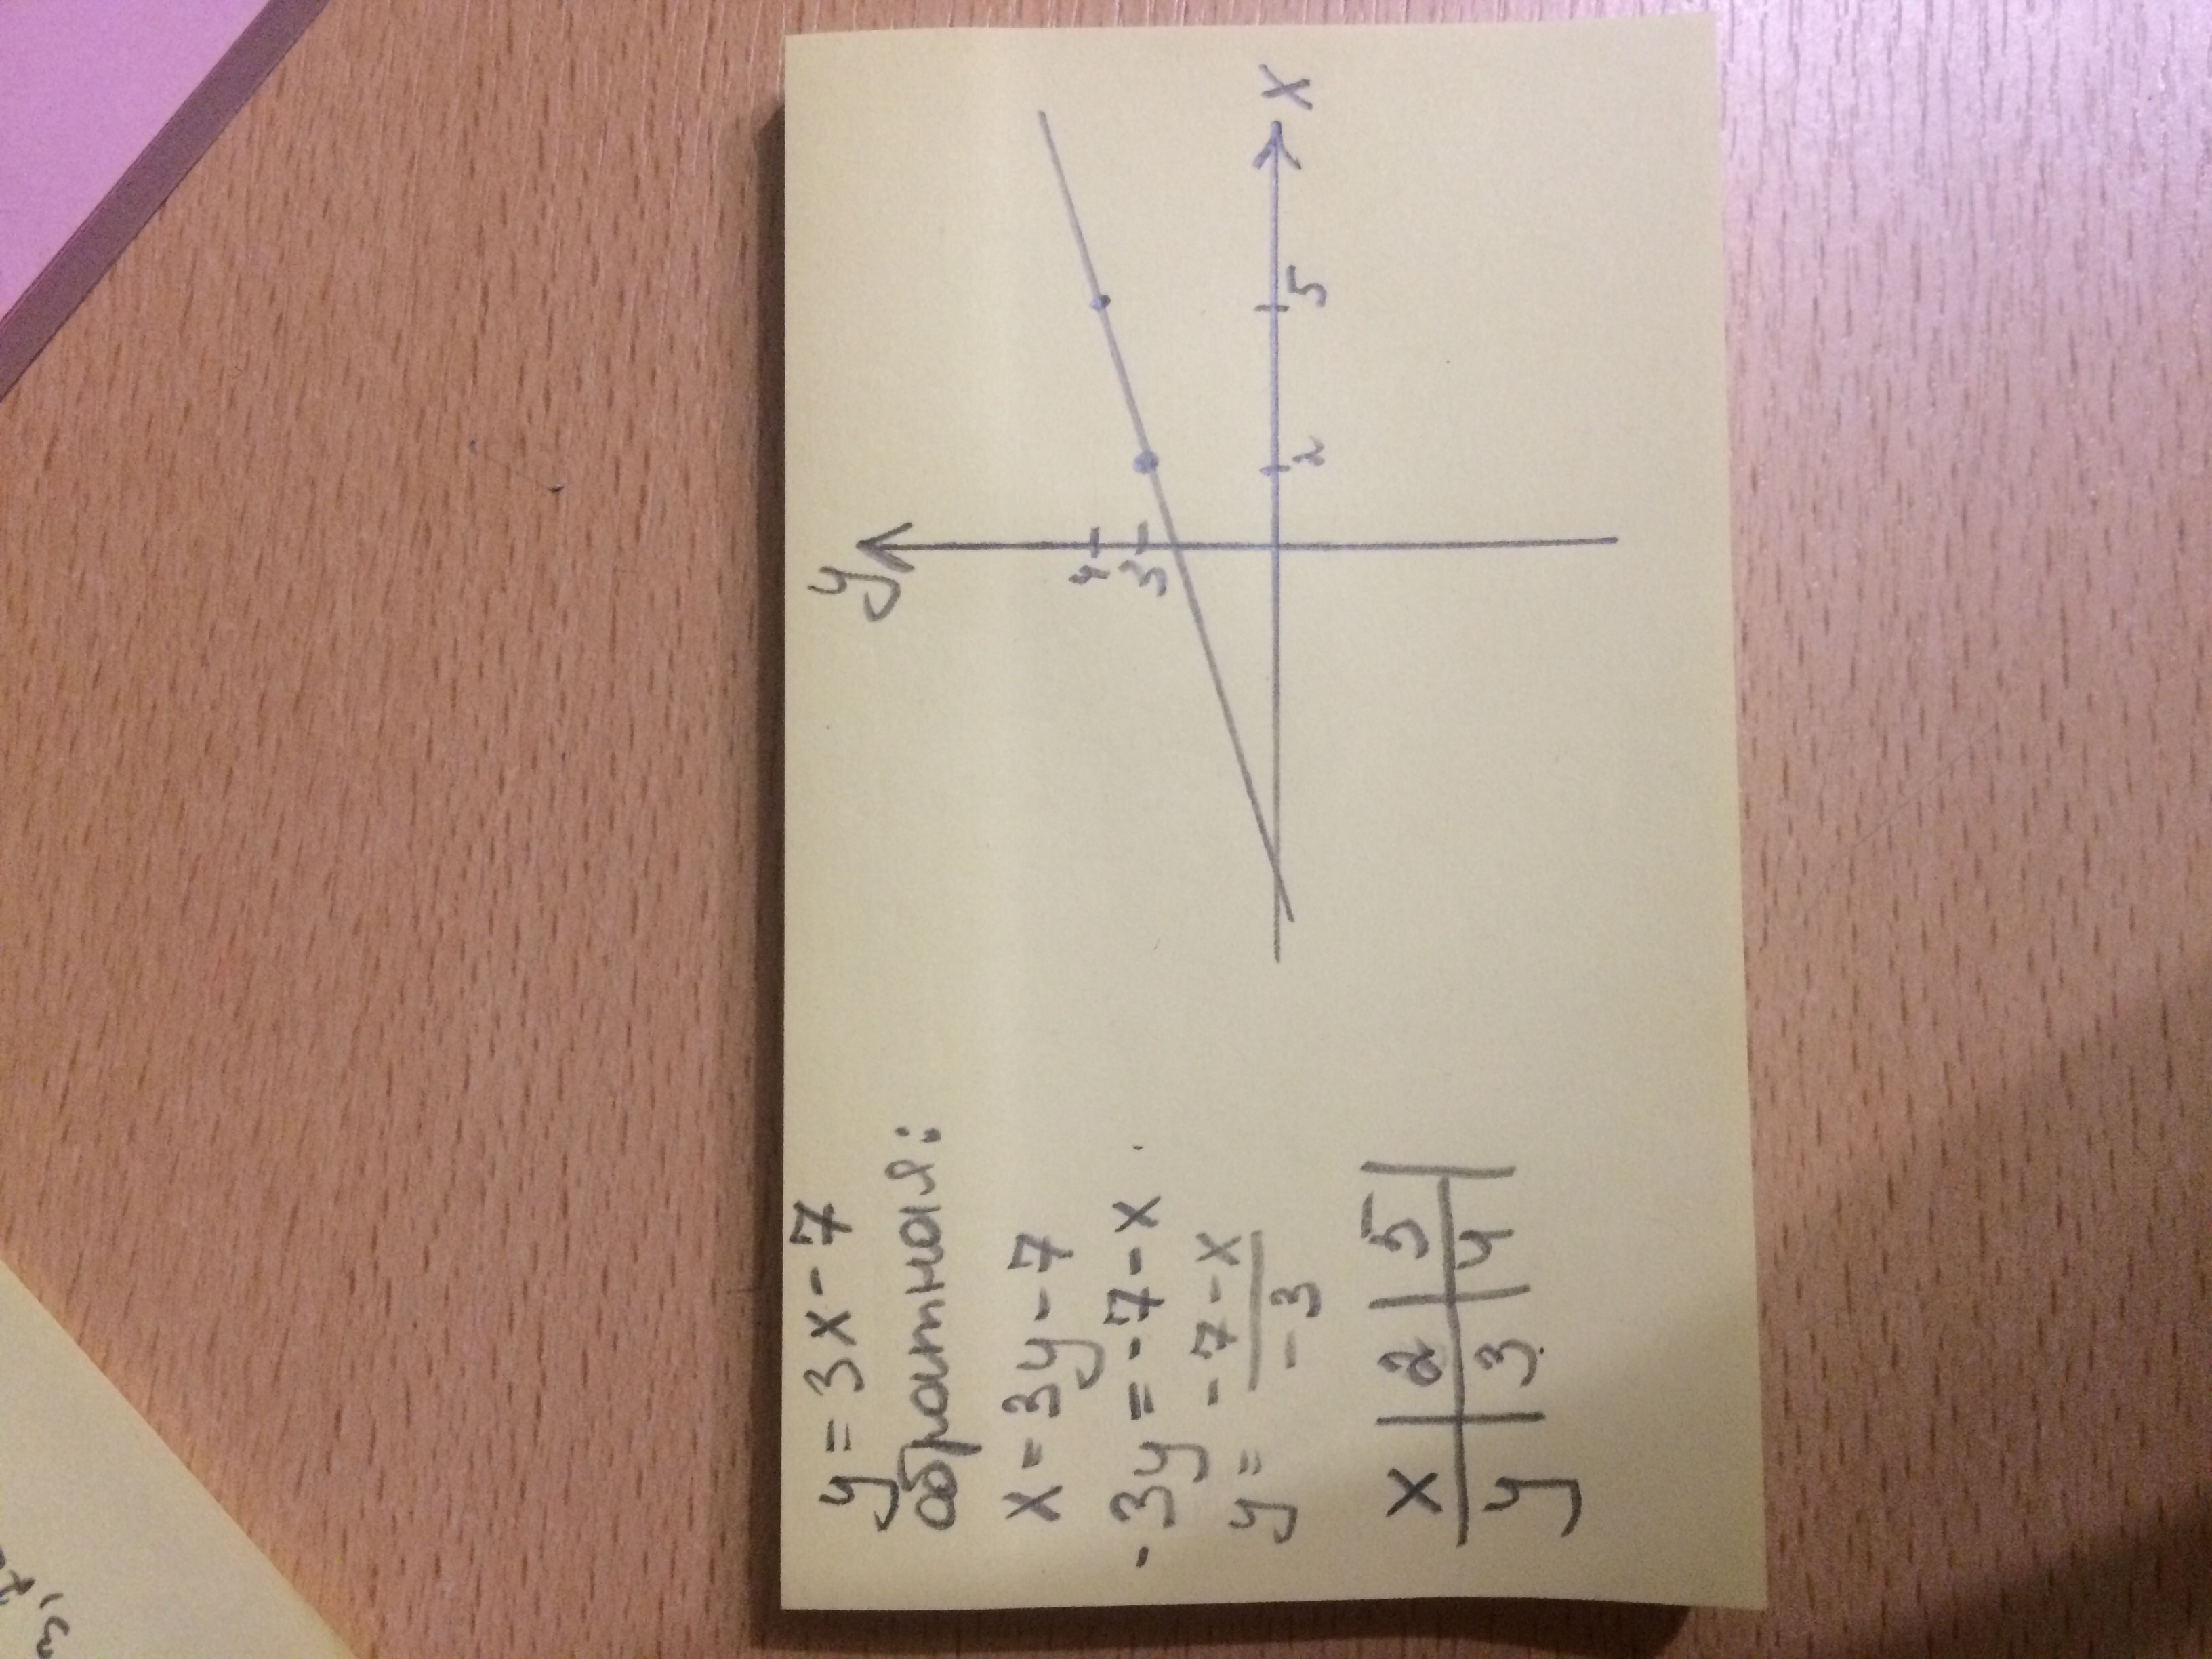 y = 3x - 7
обратная:
x = 3y - 7
-3y = -7 - x
y = -7 - x
-3
x | 2 | 5 |
y | 3 | 4
y
4
3
2
5
x
3,